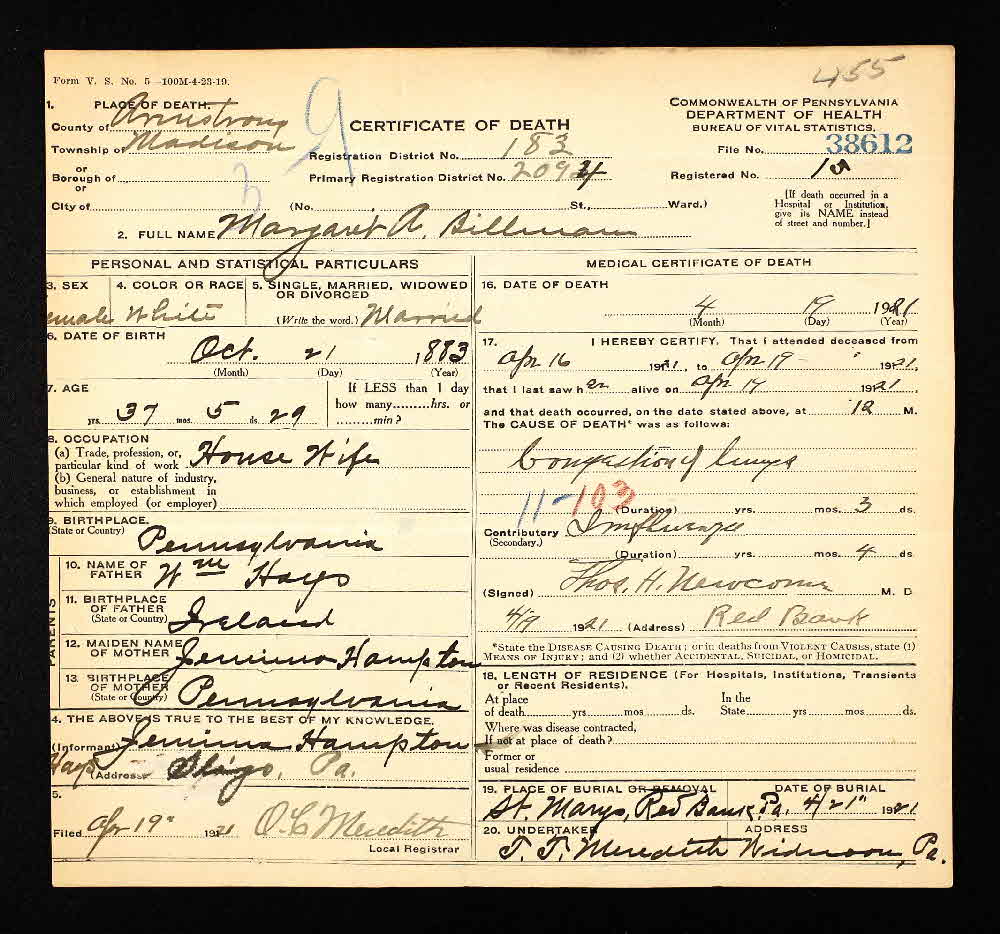 Form V. S. No. 5—100M-4-23-19.
455
1. PLACE OF DEATH.
County of Armstrong
Township of Madison
or
Borough of
or
City of
9
3
CERTIFICATE OF DEATH
Registration District No. 183
Primary Registration District No. 2094
(No. St., Ward.)
COMMONWEALTH OF PENNSYLVANIA
DEPARTMENT OF HEALTH
BUREAU OF VITAL STATISTICS.
File No. 38612
Registered No. 15
[If death occurred in a
Hospital or Institution,
give its NAME instead
of street and number.]
2. FULL NAME Margaret A. Billman
PERSONAL AND STATISTICAL PARTICULARS
3. SEX
emale
4. COLOR OR RACE
White
5. SINGLE, MARRIED, WIDOWED
OR DIVORCED
(Write the word.) Married
6. DATE OF BIRTH
Oct. 21 , 1883
(Month) (Day) (Year)
7. AGE
yrs. 37 mos. 5 ds. 29
If LESS than 1 day
how many hrs. or
min?
8. OCCUPATION
(a) Trade, profession, or,
particular kind of work House Wife
(b) General nature of industry,
business, or establishment in
which employed (or employer)
9. BIRTHPLACE.
(State or Country)
Pennsylvania
PARENTS
10. NAME OF
FATHER Wm Hays
11. BIRTHPLACE
OF FATHER
(State or Country) Ireland
12. MAIDEN NAME
OF MOTHER Jemima Hampton
13. BIRTHPLACE
OF MOTHER
(State or Country) Pennsylvania
4. THE ABOVE IS TRUE TO THE BEST OF MY KNOWLEDGE.
(Informant) Jemima Hampton
Hays Address Sligo, Pa.
5.
Filed Apr 19" 1921 O. C. Meredith
Local Registrar
MEDICAL CERTIFICATE OF DEATH
16. DATE OF DEATH
4 19 1921
(Month) (Day) (Year)
17. I HEREBY CERTIFY, That I attended deceased from
Apr 16 1921, to Apr 19 - " 1921,
that I last saw her alive on Apr 17 1921
and that death occurred, on the date stated above, at 12 M.
The CAUSE OF DEATH* was as follows:
Congestion of lungs
11-103
(Duration) yrs. mos. 3 ds.
Contributory Influenza
(Secondary.)
(Duration) yrs. mos. 4 ds
(Signed) Thos. H. Newcome M. D
4/19 1921 (Address) Red Bank
*State the DISEASE CAUSING DEATH; or in deaths from VIOLENT CAUSES, state (1)
MEANS OF INJURY; and (2) whether ACCIDENTAL, SUICIDAL, or HOMICIDAL.
18. LENGTH OF RESIDENCE (For Hospitals, Institutions, Transients
or Recent Residents).
At place
of death yrs mos ds.
In the
State yrs mos ds.
Where was disease contracted,
If not at place of death?
Former or
usual residence
19. PLACE OF BURIAL OR REMOVAL
St. Marys, Red Bank, Pa.
DATE OF BURIAL
4/21" 1921
20. UNDERTAKER
T. T. Meredith
ADDRESS
Widnoon, Pa.